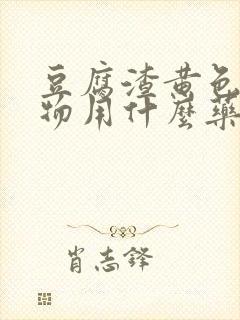 豆腐渣黄色
物用什麼藥
肖志鋒